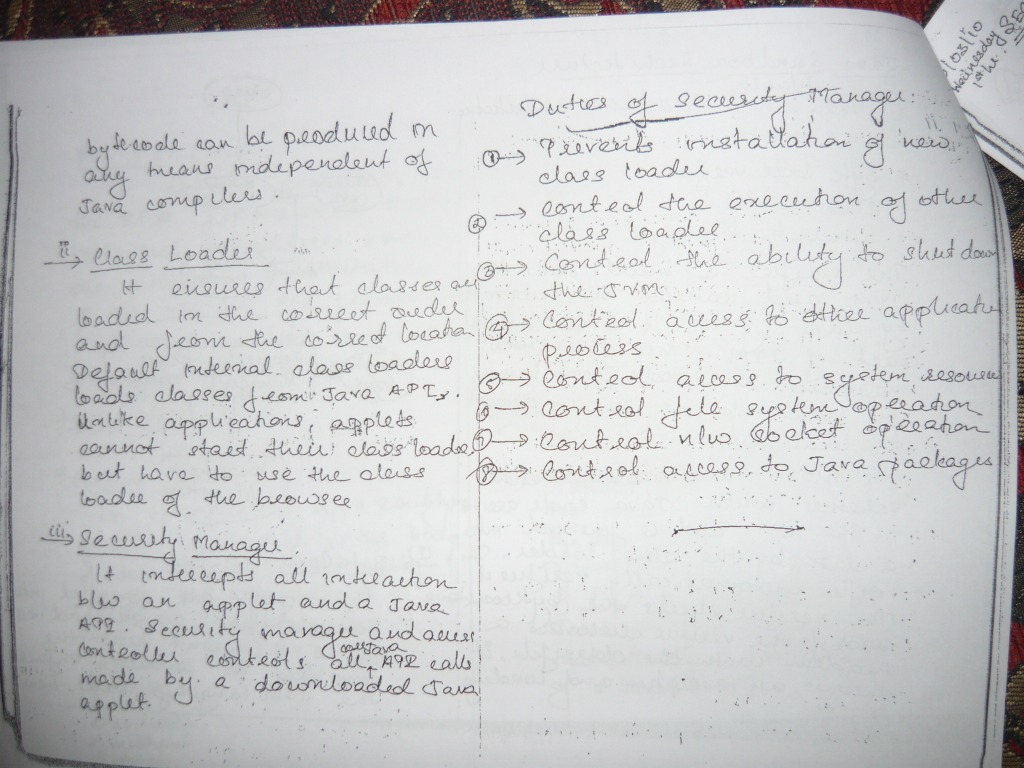 bytecode can be produced in
any means independent of
Java compilers.
ii → Class Loader
It ensures that classes are
loaded in the correct order
and from the correct location
Default internal class loaders
loads classes from Java APIs.
Unlike applications, applets
cannot start their class loader
but have to use the class
loader of the browser
iii → Security Manager.
It intercepts all interaction
b/w an applet and a Java
API. Security manager and access
controller controls all Java API calls
made by a downloaded Java
applet.
Duties of Security Manager:
① → Prevents installation of new
class loader
② → Control the execution of other
class loader
③ → Control the ability to shut down
the JVM
④ → Control access to other application
process
⑤ → Control access to system resource
⑥ → Control file system operation
⑦ → Control n/w socket operation
⑧ → Control access to Java packages
/03/10
Wednesday
1st hr.